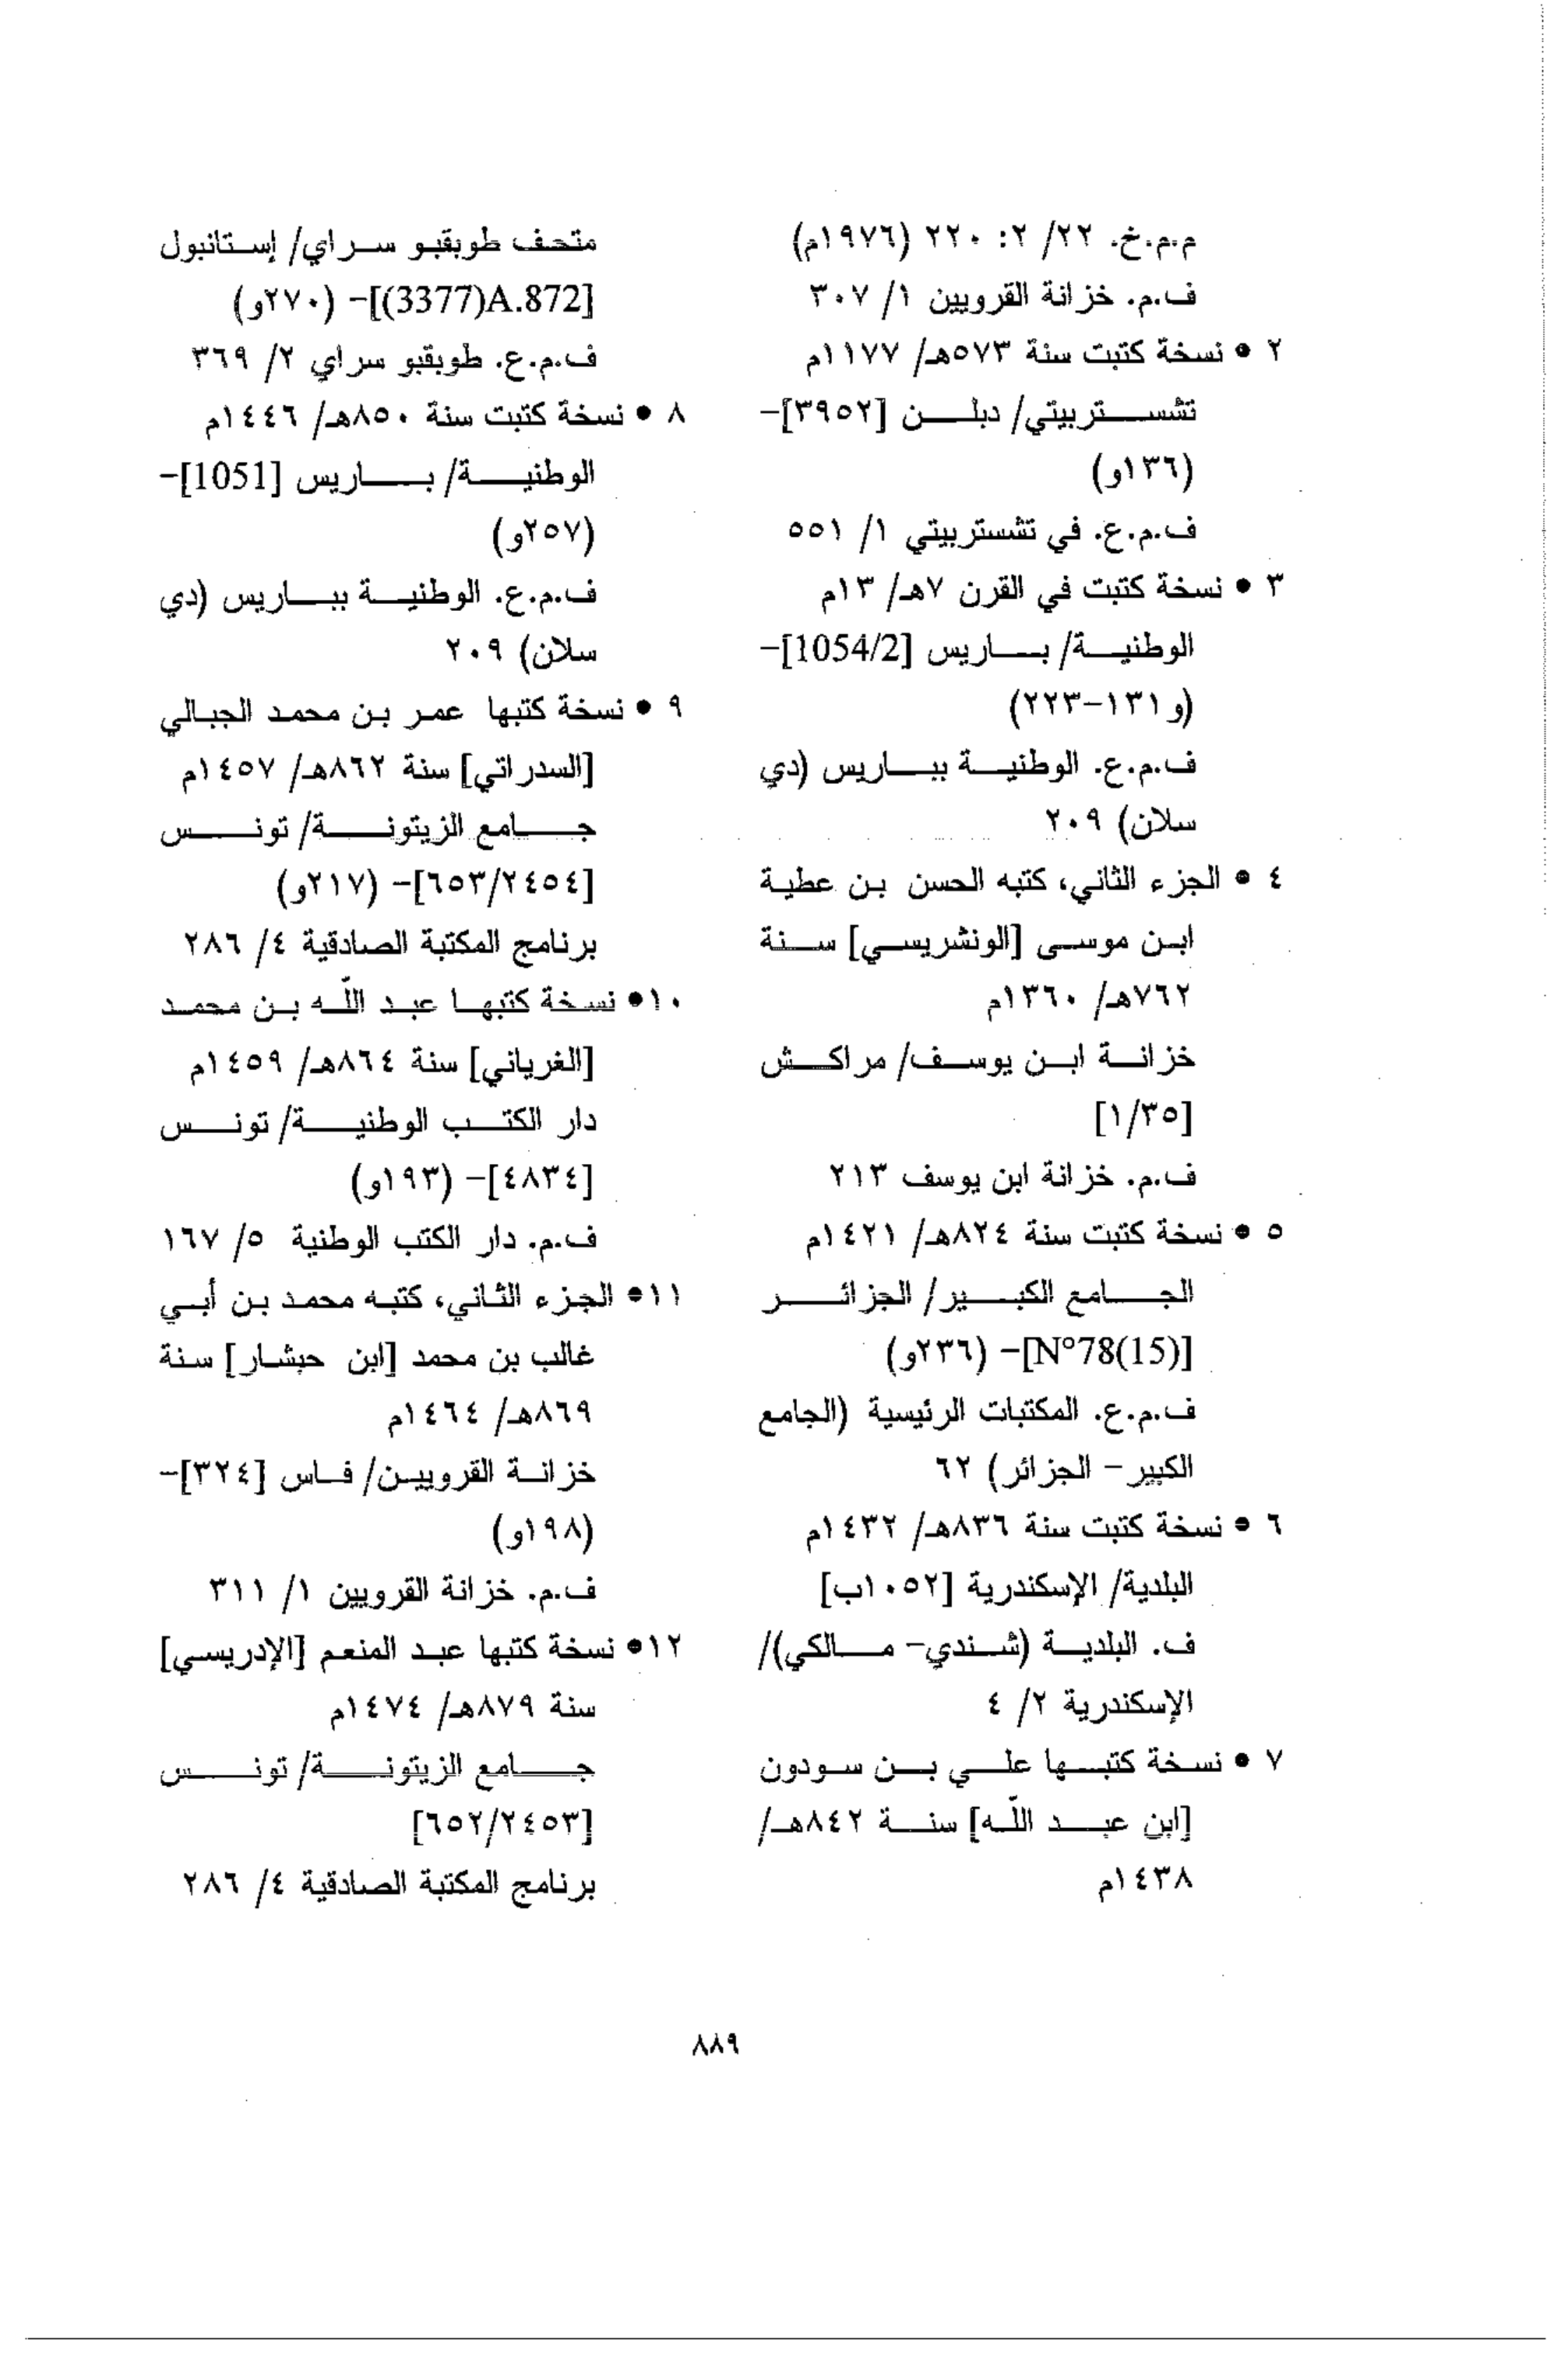 م.م.خ. ٢٢/ ٢: ٢٢٠ (١٩٧٦م)
ف.م. خزانة القرويين ١/ ٣٠٧
٢ • نسخة كتبت سنة ٥٧٣هـ/ ١١٧٧م
تشستربيتي/ دبلن [٣٩٥٢]-
(١٣٦و)
ف.م.ع. في تشستربيتي ١/ ٥٥١
٣ • نسخة كتبت في القرن ٧هـ/ ١٣م
الوطنية/ باريس [1054/2]-
(و ١٣١-٢٢٣)
ف.م.ع. الوطنية بباريس (دي
سلان) ٢٠٩
٤ • الجزء الثاني، كتبه الحسن بن عطية
ابن موسى [الونشريسي] سنة
٧٦٢هـ/ ١٣٦٠م
خزانة ابن يوسف/ مراكش
[١/٣٥]
ف.م. خزانة ابن يوسف ٢١٣
٥ • نسخة كتبت سنة ٨٢٤هـ/ ١٤٢١م
الجامع الكبير/ الجزائر
[N°78(15)]- (٢٣٦و)
ف.م.ع. المكتبات الرئيسية (الجامع
الكبير- الجزائر) ٦٢
٦ • نسخة كتبت سنة ٨٣٦هـ/ ١٤٣٢م
البلدية/ الإسكندرية [١٠٥٢ب]
ف. البلدية (شندي- مالكي)/
الإسكندرية ٢/ ٤
٧ • نسخة كتبها علي بن سودون
[ابن عبد اللّه] سنة ٨٤٢هـ/
١٤٣٨م
متحف طوبقبو سراي/ إستانبول
[3377)A.872)]- (٢٧٠و)
ف.م.ع. طوبقبو سراي ٢/ ٣٦٩
٨ • نسخة كتبت سنة ٨٥٠هـ/ ١٤٤٦م
الوطنية/ باريس [1051]-
(٢٥٧و)
ف.م.ع. الوطنية بباريس (دي
سلان) ٢٠٩
٩ • نسخة كتبها عمر بن محمد الجبالي
[السدراتي] سنة ٨٦٢هـ/ ١٤٥٧م
جامع الزيتونة/ تونس
[٦٥٣/٢٤٥٤]- (٢١٧و)
برنامج المكتبة الصادقية ٤/ ٢٨٦
١٠• نسخة كتبها عبد اللّه بن محمد
[الغرياني] سنة ٨٦٤هـ/ ١٤٥٩م
دار الكتب الوطنية/ تونس
[٤٨٣٤]- (١٩٣و)
ف.م. دار الكتب الوطنية ٥/ ١٦٧
١١• الجزء الثاني، كتبه محمد بن أبي
غالب بن محمد [ابن حبشار] سنة
٨٦٩هـ/ ١٤٦٤م
خزانة القرويين/ فاس [٣٢٤]-
(١٩٨و)
ف.م. خزانة القرويين ١/ ٣١١
١٢• نسخة كتبها عبد المنعم [الإدريسي]
سنة ٨٧٩هـ/ ١٤٧٤م
جامع الزيتونة/ تونس
[٦٥٢/٢٤٥٣]
برنامج المكتبة الصادقية ٤/ ٢٨٦
٨٨٩